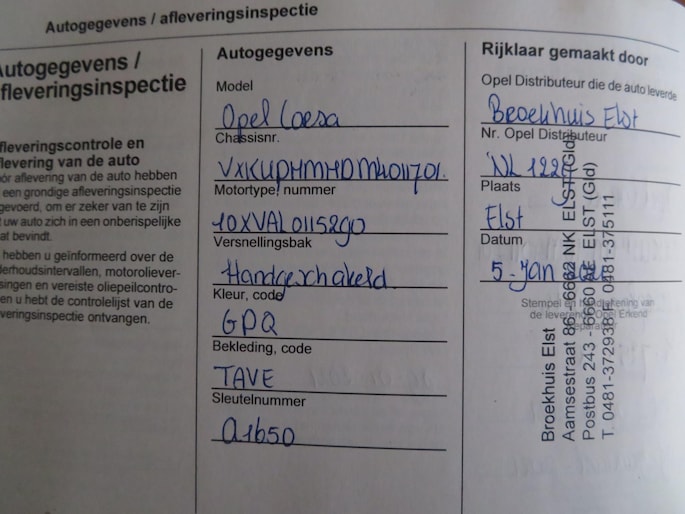 Autogegevens / afleveringsinspectie
Autogegevens /
afleveringsinspectie
fleveringscontrole en
flevering van de auto
óór aflevering van de auto hebben
een grondige afleveringsinspectie
gevoerd, om er zeker van te zijn
t uw auto zich in een onberispelijke
at bevindt.
hebben u geïnformeerd over de
derhoudsintervallen, motoroliever-
singen en vereiste oliepeilcontro-
en u hebt de controlelijst van de
veringsinspectie ontvangen.
Autogegevens
Model
Opel Corsa
Chassisnr.
Motortype, nummer
10XVAL0115290
Versnellingsbak
Handgeschakeld
Kleur, code
GPQ
Bekleding, code
TAVE
Sleutelnummer
A1650
Rijklaar gemaakt door
Opel Distributeur die de auto leverde
Broekhuis Elst
Nr. Opel Distributeur
NL
Plaats
Elst
Datum
5-Jan
Stempel en handtekening van
de leverende Opel Erkend
Broekhuis Elst
Aamsestraat 86 - 6662 NK ELST (Gld)
Postbus 243 - 6660 AE ELST (Gld)
T. 0481-372938 F. 0481-375111